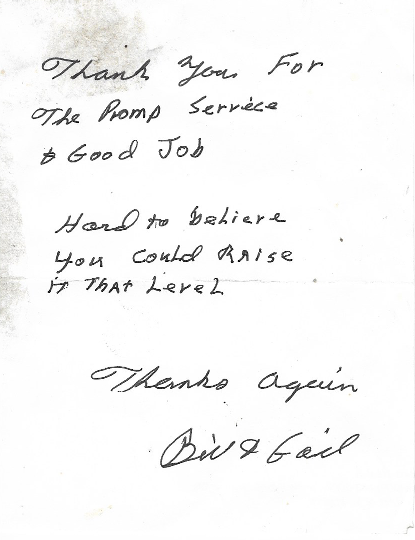 Thank You For
The Promp Service
& Good Job
Hard to believe
You Could Raise
it That Level
Thanks Again
Bill & Gail